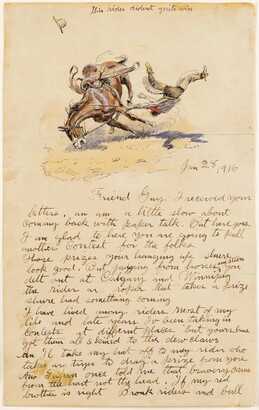 this rider dident quite win
Jan 28 1916
Friend Guy I received your
letters. an am a little slow about
coming back with paper talk. But here goes
I am glad to here you are going to pull
another Contest for the folks
Those prizes your hanging up shure
look good. But judging from horses you
delt out at Calgary and Winnipeg
the rider or roper that takes a prize
shure had something coming
I have lived among riders most of my
life and late years Iv been taking in
contests at different places but yours has
got them all skined to the dew claws
An Il take my hat off to any rider who
takes or trys to drag a prize from you
An once told me that bravery came
from the hart not the head. If my red
brother is right Bronk riders and bull